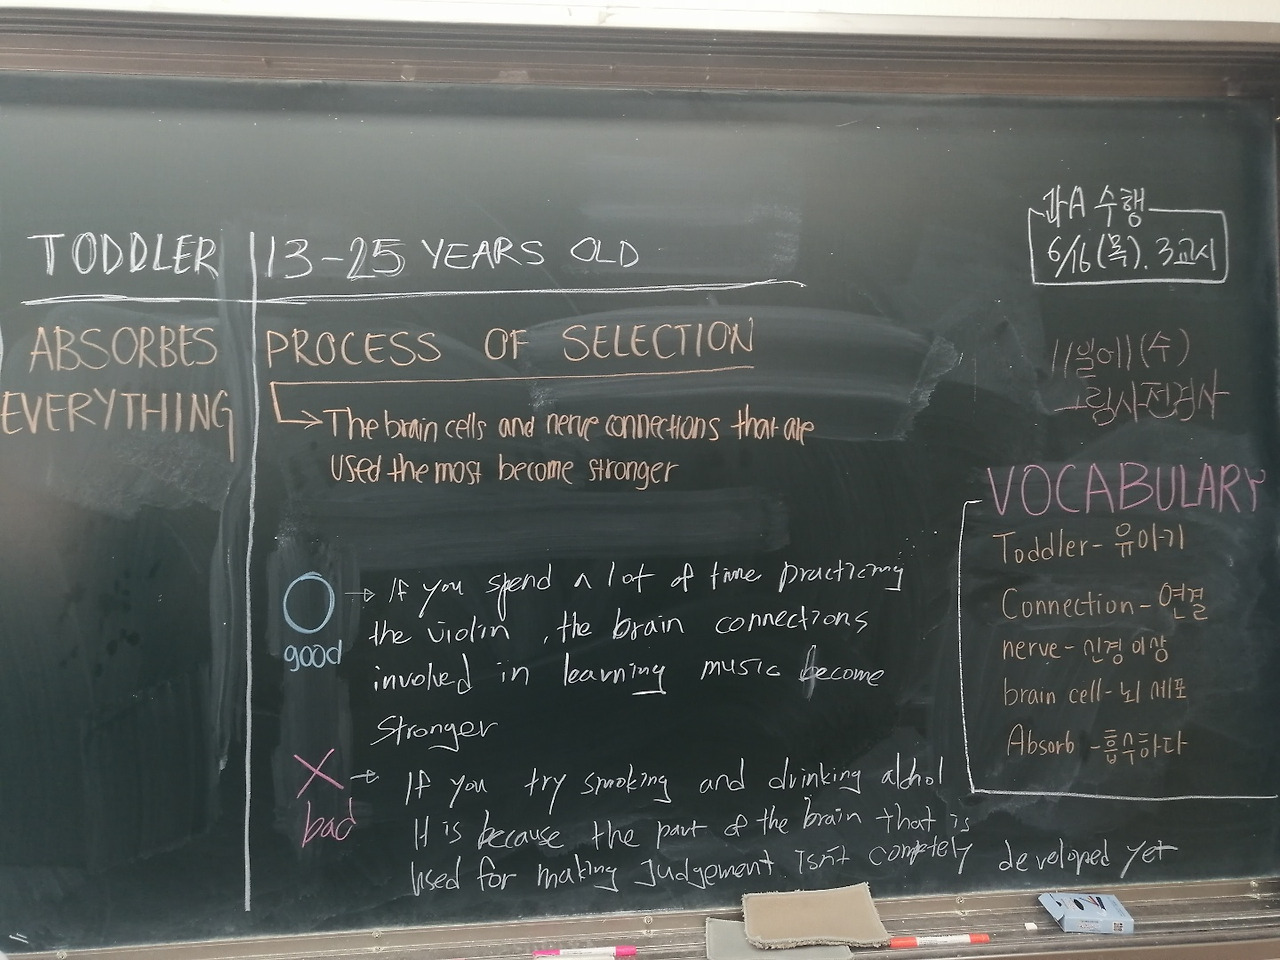 TODDLER
13-25 YEARS OLD
ABSORBES
EVERYTHING
PROCESS OF SELECTION
The brain cells and nerve connections that are
used the most become stronger
good
If you spend a lot of time practicing
the violin, the brain connections
involved in learning music become
stronger
bad
If you try smoking and drinking alchol
It is because the part of the brain that is
used for making judgement isn't completely developed yet
과A 수행
6/16(목). 3교시
11일에(수)
그림사전검사
VOCABULARY
Toddler- 유아기
Connection - 연결
nerve- 신경이상
brain cell- 뇌세포
Absorb - 흡수하다